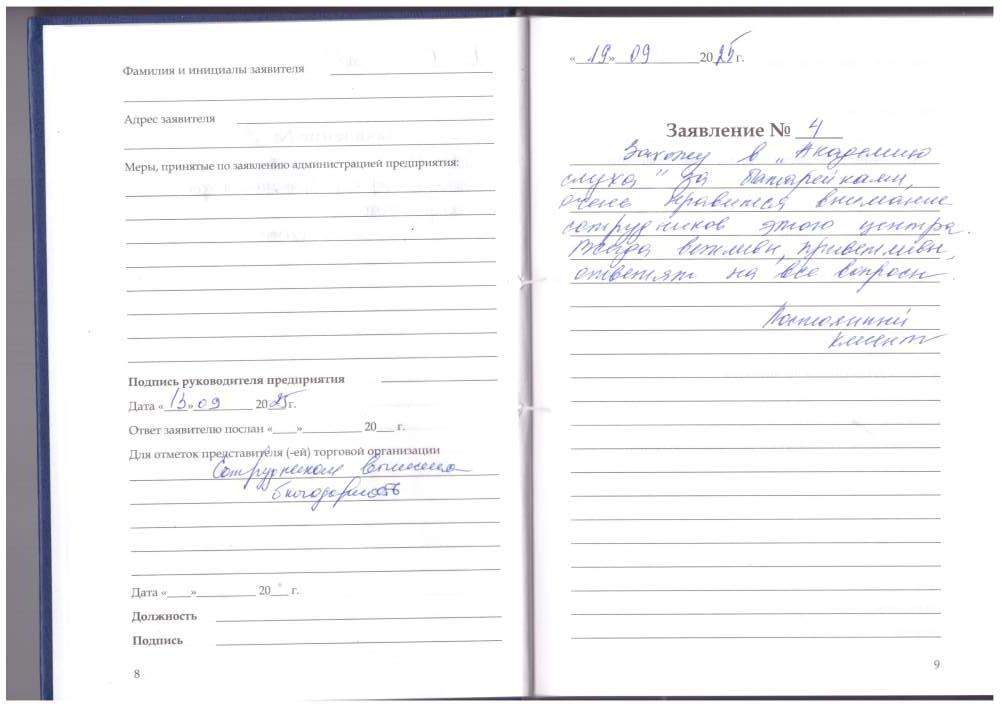 Фамилия и инициалы заявителя
Адрес заявителя
Меры, принятые по заявлению администрацией предприятия:
Подпись руководителя предприятия
Дата «13» 09 2025 г.
Ответ заявителю послан «____»__________ 20___ г.
Для отметок представителя (-ей) торговой организации
Сотрудникам вынесена
благодарность
Дата «____»__________ 20___ г.
Должность
Подпись
8
«19» 09 2025 г.
Заявление № 4
Захожу в „Академию
слуха" за батарейками,
очень нравится внимание
сотрудников этого центра.
Всегда вежливы, приветливы,
ответят на все вопросы.
Постоянный
клиент
9